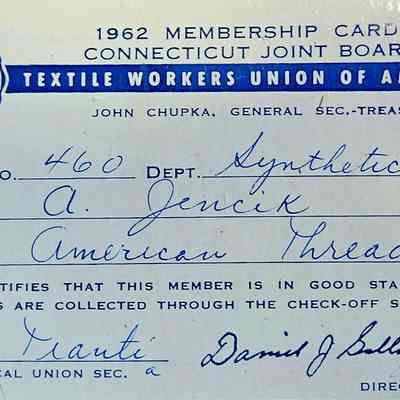 1962 MEMBERSHIP CARD
CONNECTICUT JOINT BOAR
TEXTILE WORKERS UNION OF A
JOHN CHUPKA, GENERAL SEC.-TREAS
O. 460 DEPT. Synthetic
A. Jencik
American Thread
TIFIES THAT THIS MEMBER IS IN GOOD STA
S ARE COLLECTED THROUGH THE CHECK-OFF S
Daniel J
CAL UNION SEC.
DIREC